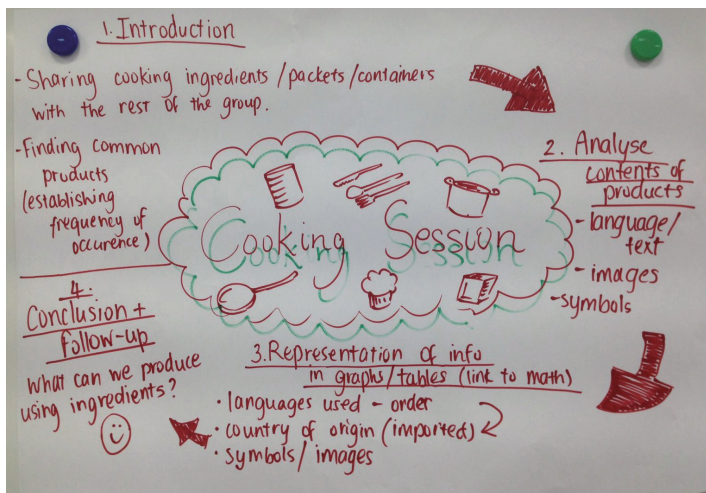 1. Introduction
- Sharing cooking ingredients / packets / containers
with the rest of the group.
- Finding common
products
(establishing
frequency of
occurence)
Cooking Session
2. Analyse
contents of
products
- language/
text
- images
- symbols
3. Representation of info
in graphs/tables (link to math)
• languages used - order
• country of origin (imported)
• symbols / images
4.
Conclusion +
follow-up
What can we produce
using ingredients?